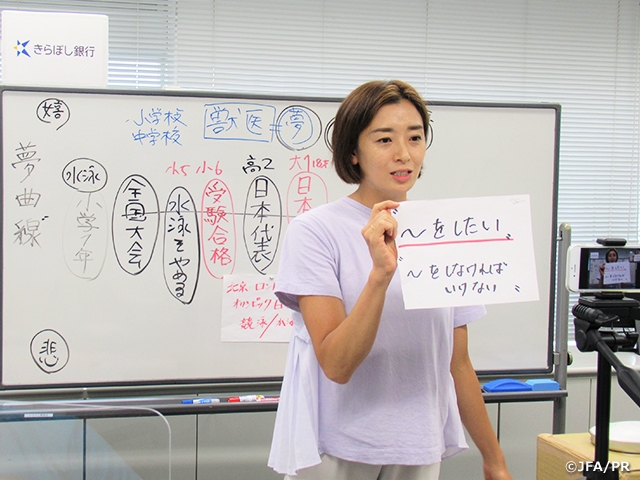 きらぼし銀行
嬉
小学校
中学校
獣医=夢
夢曲線
小5 小6 高2 大1 18才
水泳
小学1年
全国大会
水泳をやめる
受験合格
日本代表
日本
北京 ロンドン
オリンピック日
競泳/
悲
"〜をしたい"
"〜をしなければ
いけない"
©JFA/PR